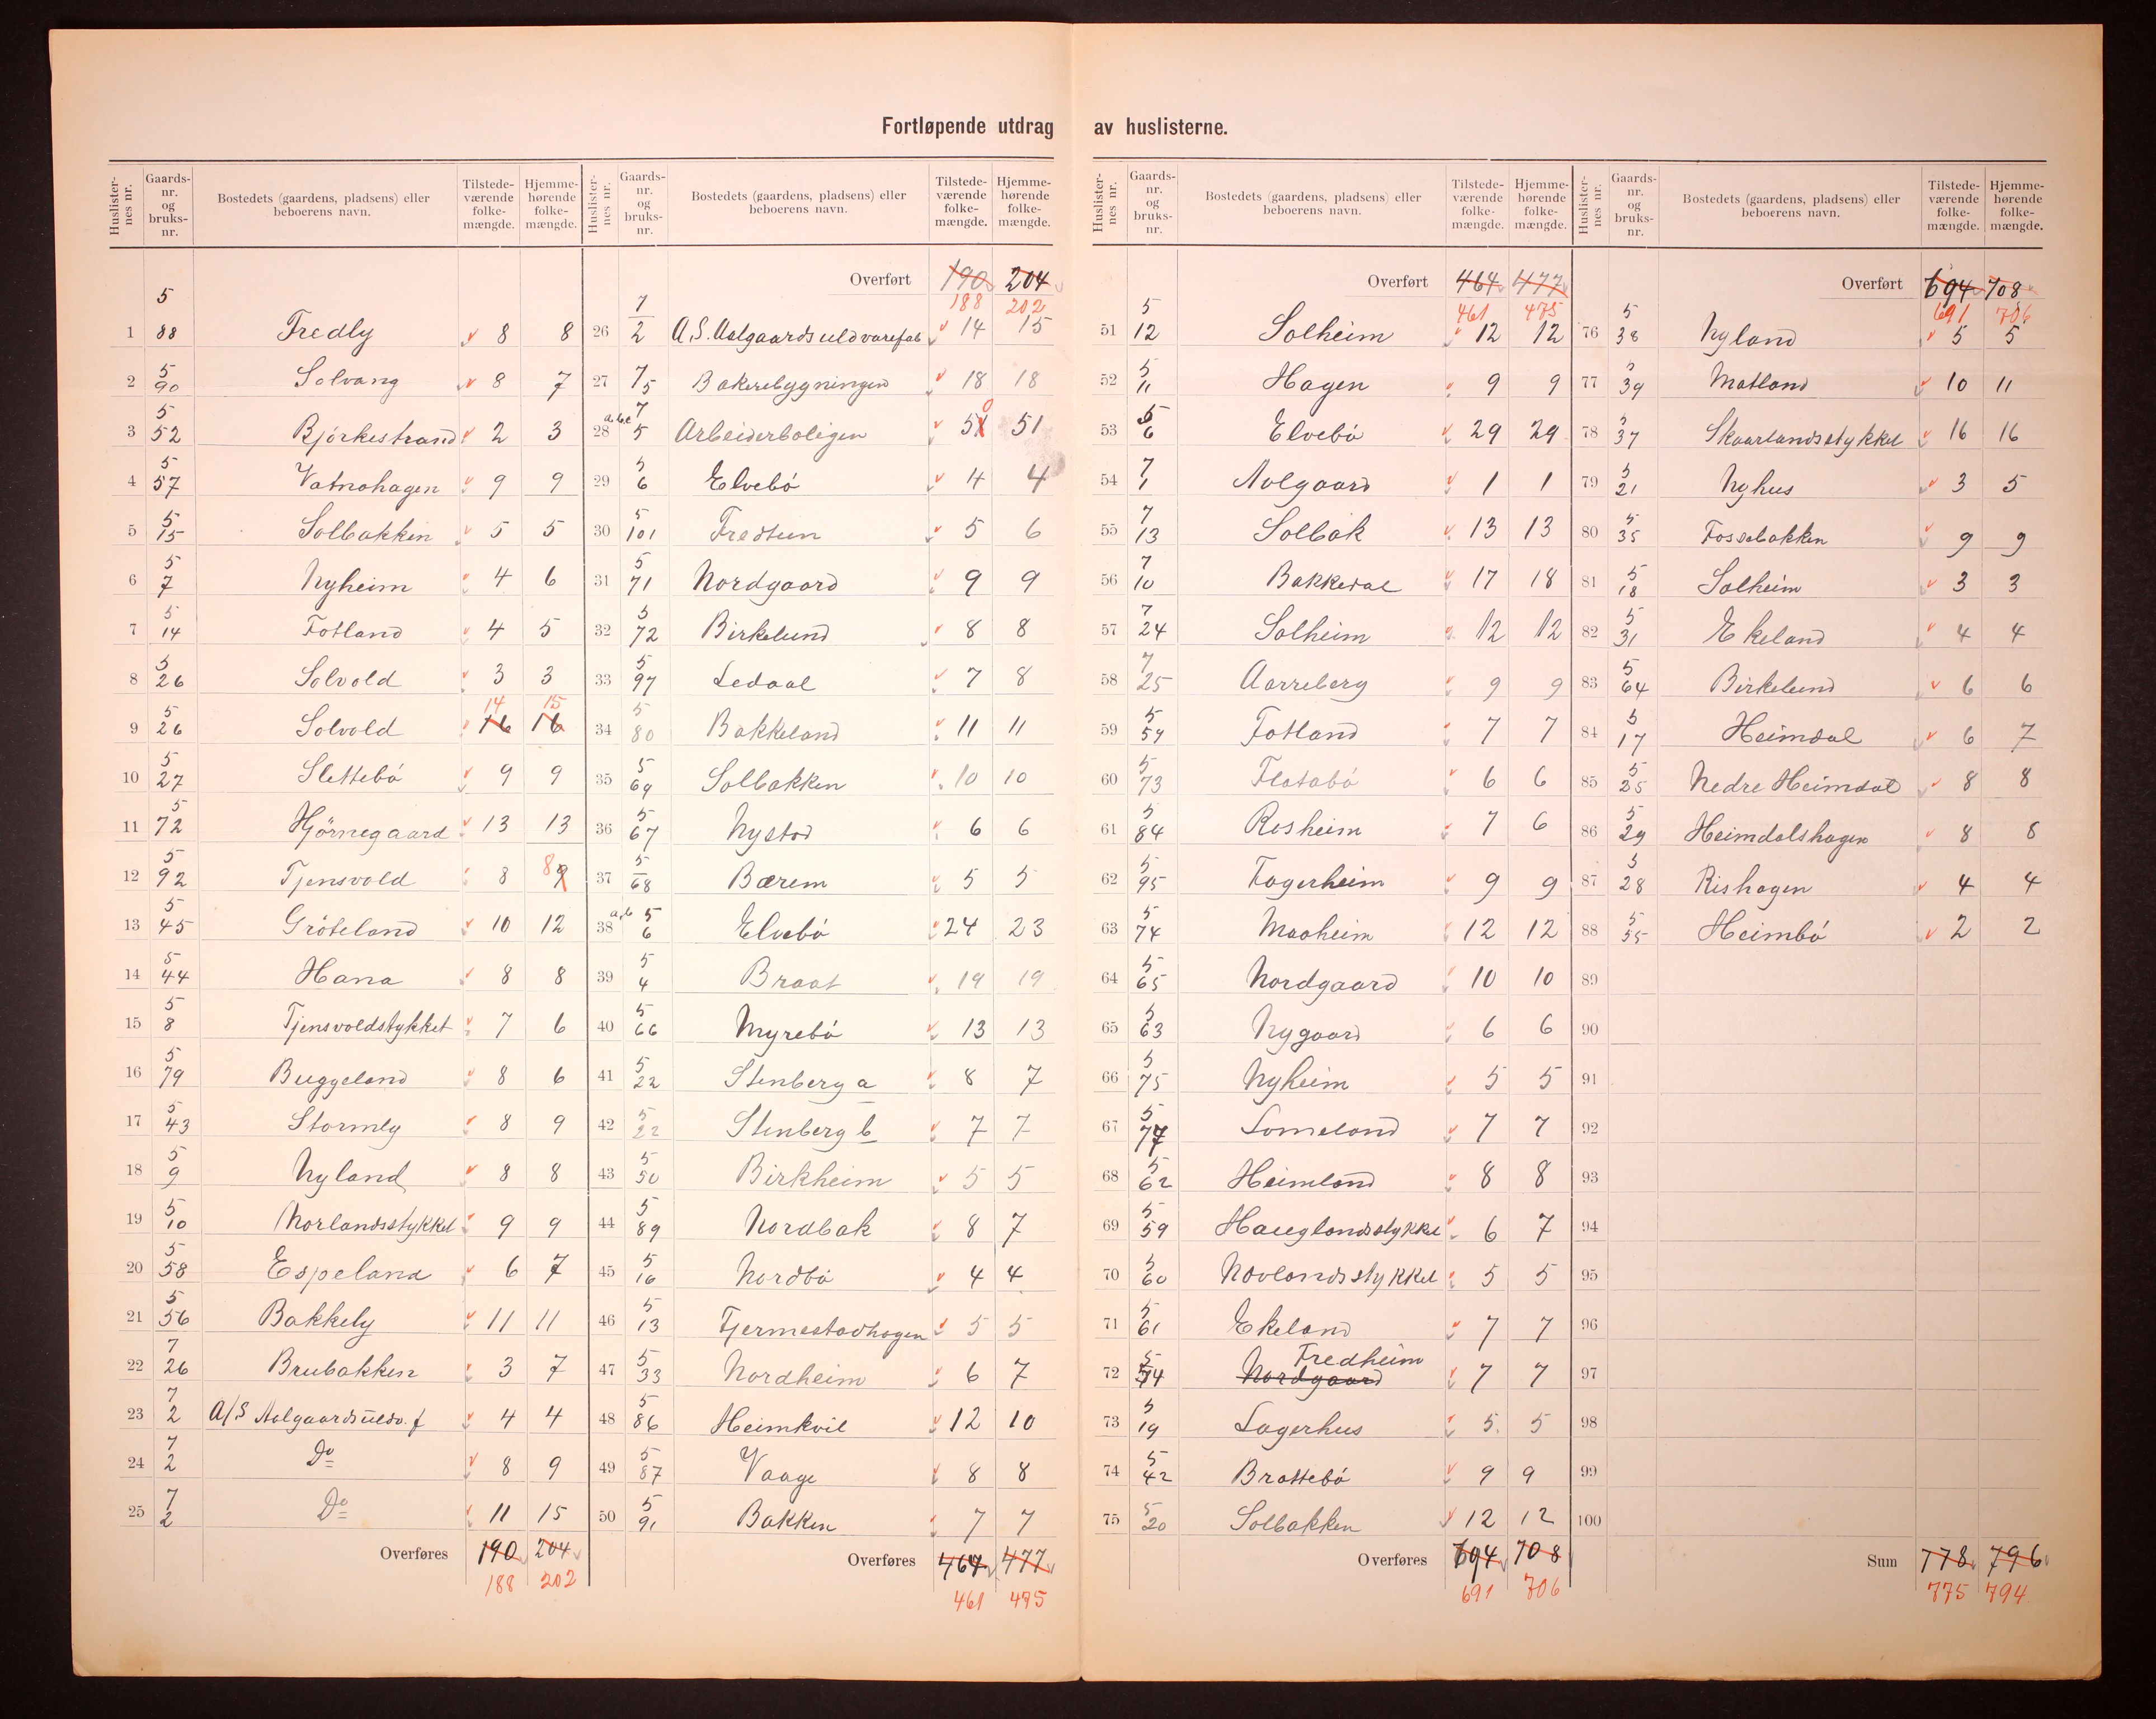 Fortløpende utdrag av huslisterne.
Huslisternes nr. Gaards-nr. og bruks-nr. Bostedets (gaardens, pladsens) eller beboerens navn. Tilstede-værende folke-mængde. Hjemme-hørende folke-mængde.
1 5 88 Fredly 8 8
2 5 90 Solvang 8 7
3 5 52 Bjørkestrand 2 3
4 5 57 Vatnahagen 9 9
5 5 15 Solbakken 5 5
6 5 7 Nyheim 4 6
7 5 14 Fotland 4 5
8 5 26 Solvold 3 3
14 15
9 5 26 Solvold 16 16
10 5 27 Slettebø 9 9
11 5 72 Hjørnegaard 13 13
12 5 92 Tjensvold 8 8 9
13 5 45 Grøteland 10 12
14 5 44 Hana 8 8
15 5 8 Tjensvoldstykket 7 6
16 5 79 Buggeland 8 6
17 5 43 Stormly 8 9
18 5 9 Nyland 8 8
19 5 10 Norlandsstykket 9 9
20 5 58 Espeland 6 7
21 5 56 Bakkely 11 11
22 7 26 Brubakken 3 7
23 7 2 A/S Aalgaards uldv. f 4 4
24 7 2 Do 8 9
25 7 2 Do 11 15
Overføres 190 204
188 202
Huslisternes nr. Gaards-nr. og bruks-nr. Bostedets (gaardens, pladsens) eller beboerens navn. Tilstede-værende folke-mængde. Hjemme-hørende folke-mængde.
Overført 190 204
188 202
26 7 2 A.S. Aalgaards uldvarefab 14 15
27 7 5 Bakerebygningen 18 18
28 a,b,c 7 5 Arbeiderboligen 51 0 51
29 5 6 Elvebø 4 4
30 5 101 Fredtun 5 6
31 5 71 Nordgaard 9 9
32 5 72 Birkelund 8 8
33 5 97 Ledaal 7 8
34 5 80 Bakkeland 11 11
35 5 69 Solbakken 10 10
36 5 67 Nystad 6 6
37 5 68 Bærem 5 5
38 a,b 5 6 Elvebø 24 23
39 5 4 Braat 19 19
40 5 66 Myrebø 13 13
41 5 22 Stenberg a 8 7
42 5 22 Stenberg b 7 7
43 5 50 Birkheim 5 5
44 5 89 Nordbak 8 7
45 5 16 Nordbø 4 4
46 5 13 Fjermestadhagen 5 5
47 5 33 Nordheim 6 7
48 5 86 Heimkvil 12 10
49 5 87 Vaage 8 8
50 5 91 Bakken 7 7
Overføres 464 477
461 475
Huslisternes nr. Gaards-nr. og bruks-nr. Bostedets (gaardens, pladsens) eller beboerens navn. Tilstede-værende folke-mængde. Hjemme-hørende folke-mængde.
Overført 464 477
461 475
51 5 12 Solheim 12 12
52 5 11 Hagen 9 9
53 5 6 Elvebø 29 29
54 7 1 Aalgaard 1 1
55 7 13 Solbak 13 13
56 7 10 Bakkedal 17 18
57 7 24 Solheim 12 12
58 7 25 Aarreberg 9 9
59 5 54 Fotland 7 7
60 5 73 Flatabø 6 6
61 5 84 Rosheim 7 6
62 5 95 Fagerheim 9 9
63 5 74 Maaheim 12 12
64 5 65 Nordgaard 10 10
65 5 63 Nygaard 6 6
66 5 75 Nyheim 5 5
67 5 77 Lomeland 7 7
68 5 62 Heimland 8 8
69 5 59 Hauglandsstykket 6 7
70 5 60 Novlandsstykket 5 5
71 5 61 Ekeland 7 7
Fredheim
72 5 74 Nordgaard 7 7
73 5 19 Lagerhus 5 5
74 5 42 Brattebø 9 9
75 5 20 Solbakken 12 12
Overføres 694 708
691 706
Huslisternes nr. Gaards-nr. og bruks-nr. Bostedets (gaardens, pladsens) eller beboerens navn. Tilstede-værende folke-mængde. Hjemme-hørende folke-mængde.
Overført 694 708
691 706
76 5 38 Nyland 5 5
77 5 39 Matland 10 11
78 5 37 Skaarlandsstykket 16 16
79 5 21 Nyhus 3 5
80 5 35 Fossebakken 9 9
81 5 18 Solheim 3 3
82 5 31 Ekeland 4 4
83 5 64 Birkelund 6 6
84 5 17 Heimdal 6 7
85 5 25 Nedre Heimdal 8 8
86 5 29 Heimdalshagen 8 8
87 5 28 Rishagen 4 4
88 5 55 Heimbø 2 2
89
90
91
92
93
94
95
96
97
98
99
100
Sum 778 796
775 794